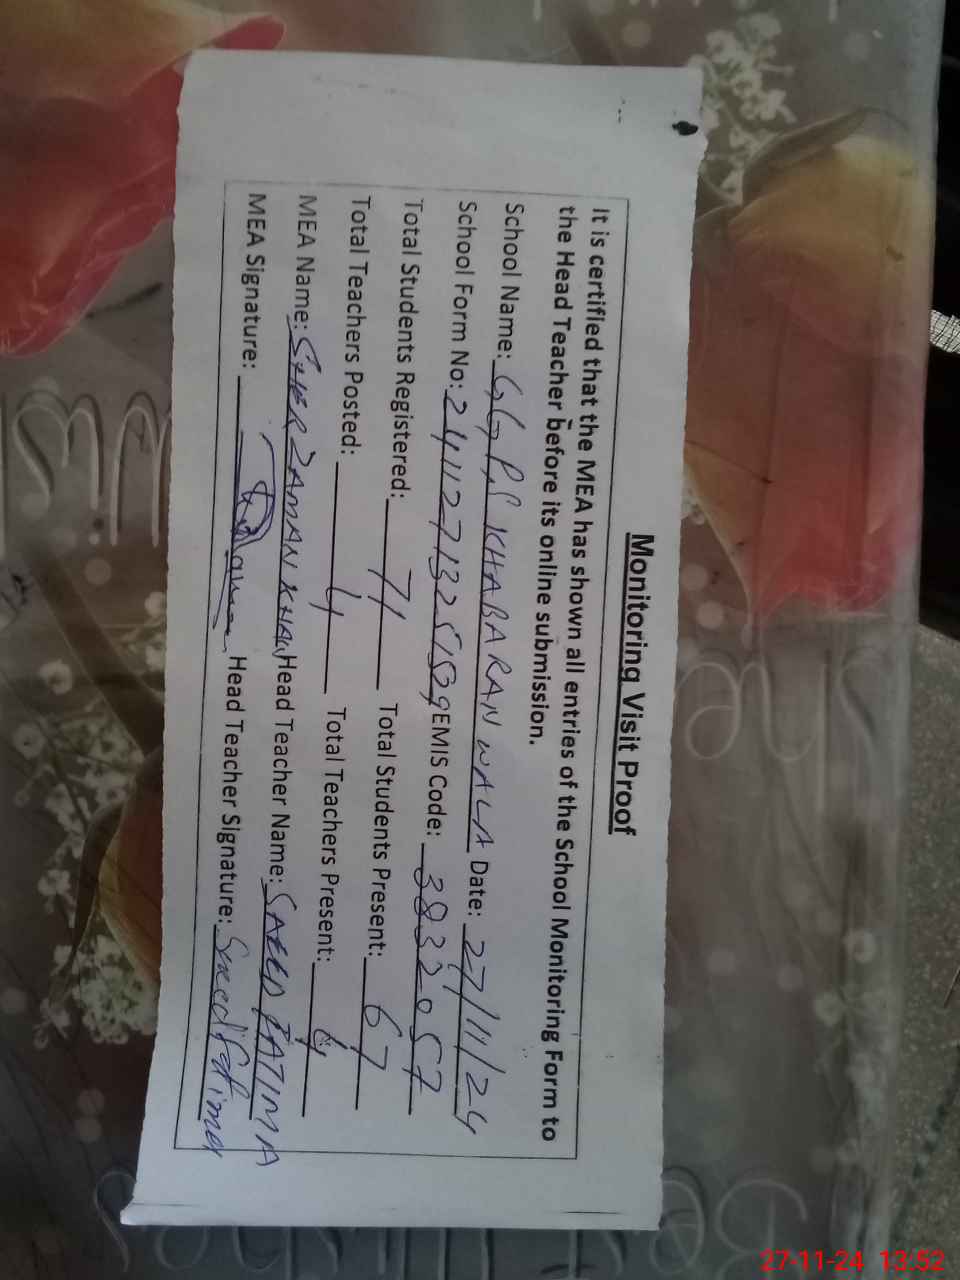 Monitoring Visit Proof
It is certified that the MEA has shown all entries of the School Monitoring Form to
the Head Teacher before its online submission.
School Name: GGPS KHABARAN WALA Date: 27/11/24
School Form No: EMIS Code: 3832057
Total Students Registered: 71 Total Students Present: 67
Total Teachers Posted: 4 Total Teachers Present: 4
MEA Name: SHER ZAMAN KHAN Head Teacher Name: SAEED FATIMA
MEA Signature: Head Teacher Signature: Saeed Fatima
27-11-24 13:52